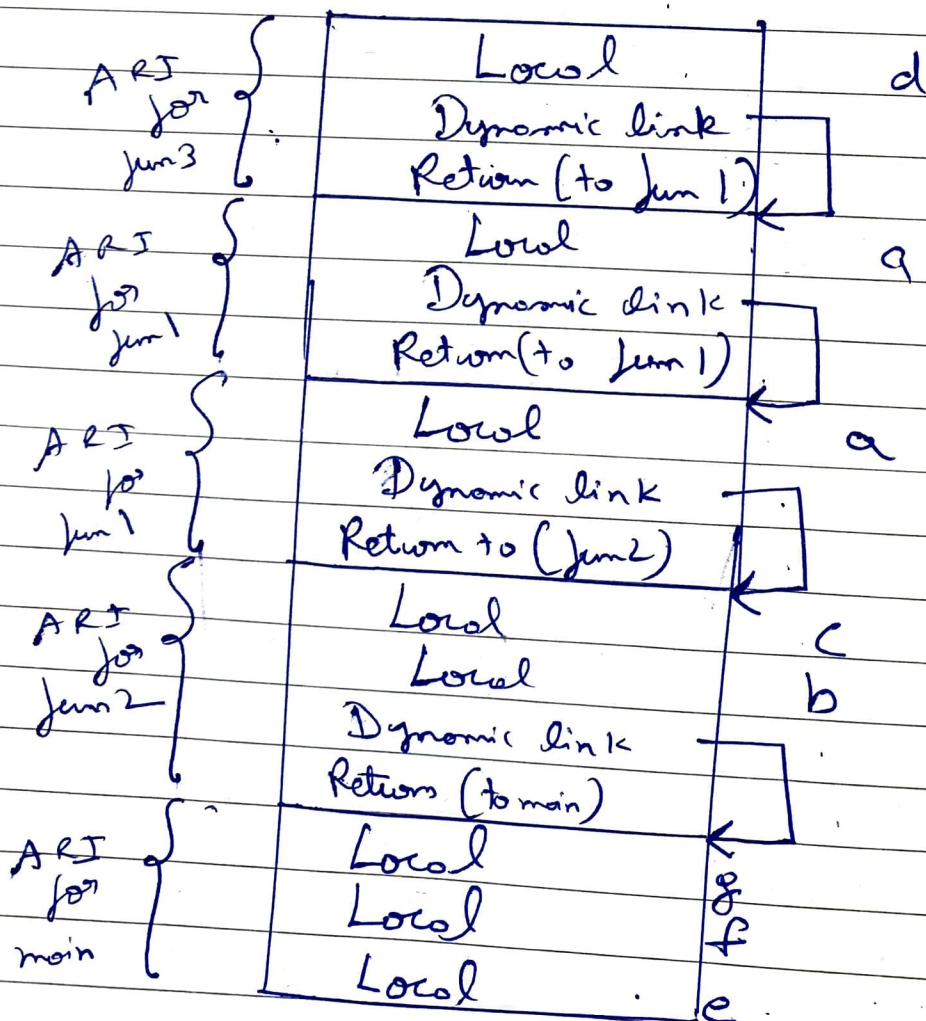 ARI for fun3
Local d
Dynamic link
Return (to fun 1)
ARI for fun1
Local a
Dynamic link
Return (to fun 1)
ARI for fun1
Local a
Dynamic link
Return to (fun2)
ARI for fun2
Local c
Local b
Dynamic link
Return (to main)
ARI for main
Local g
Local f
Local e